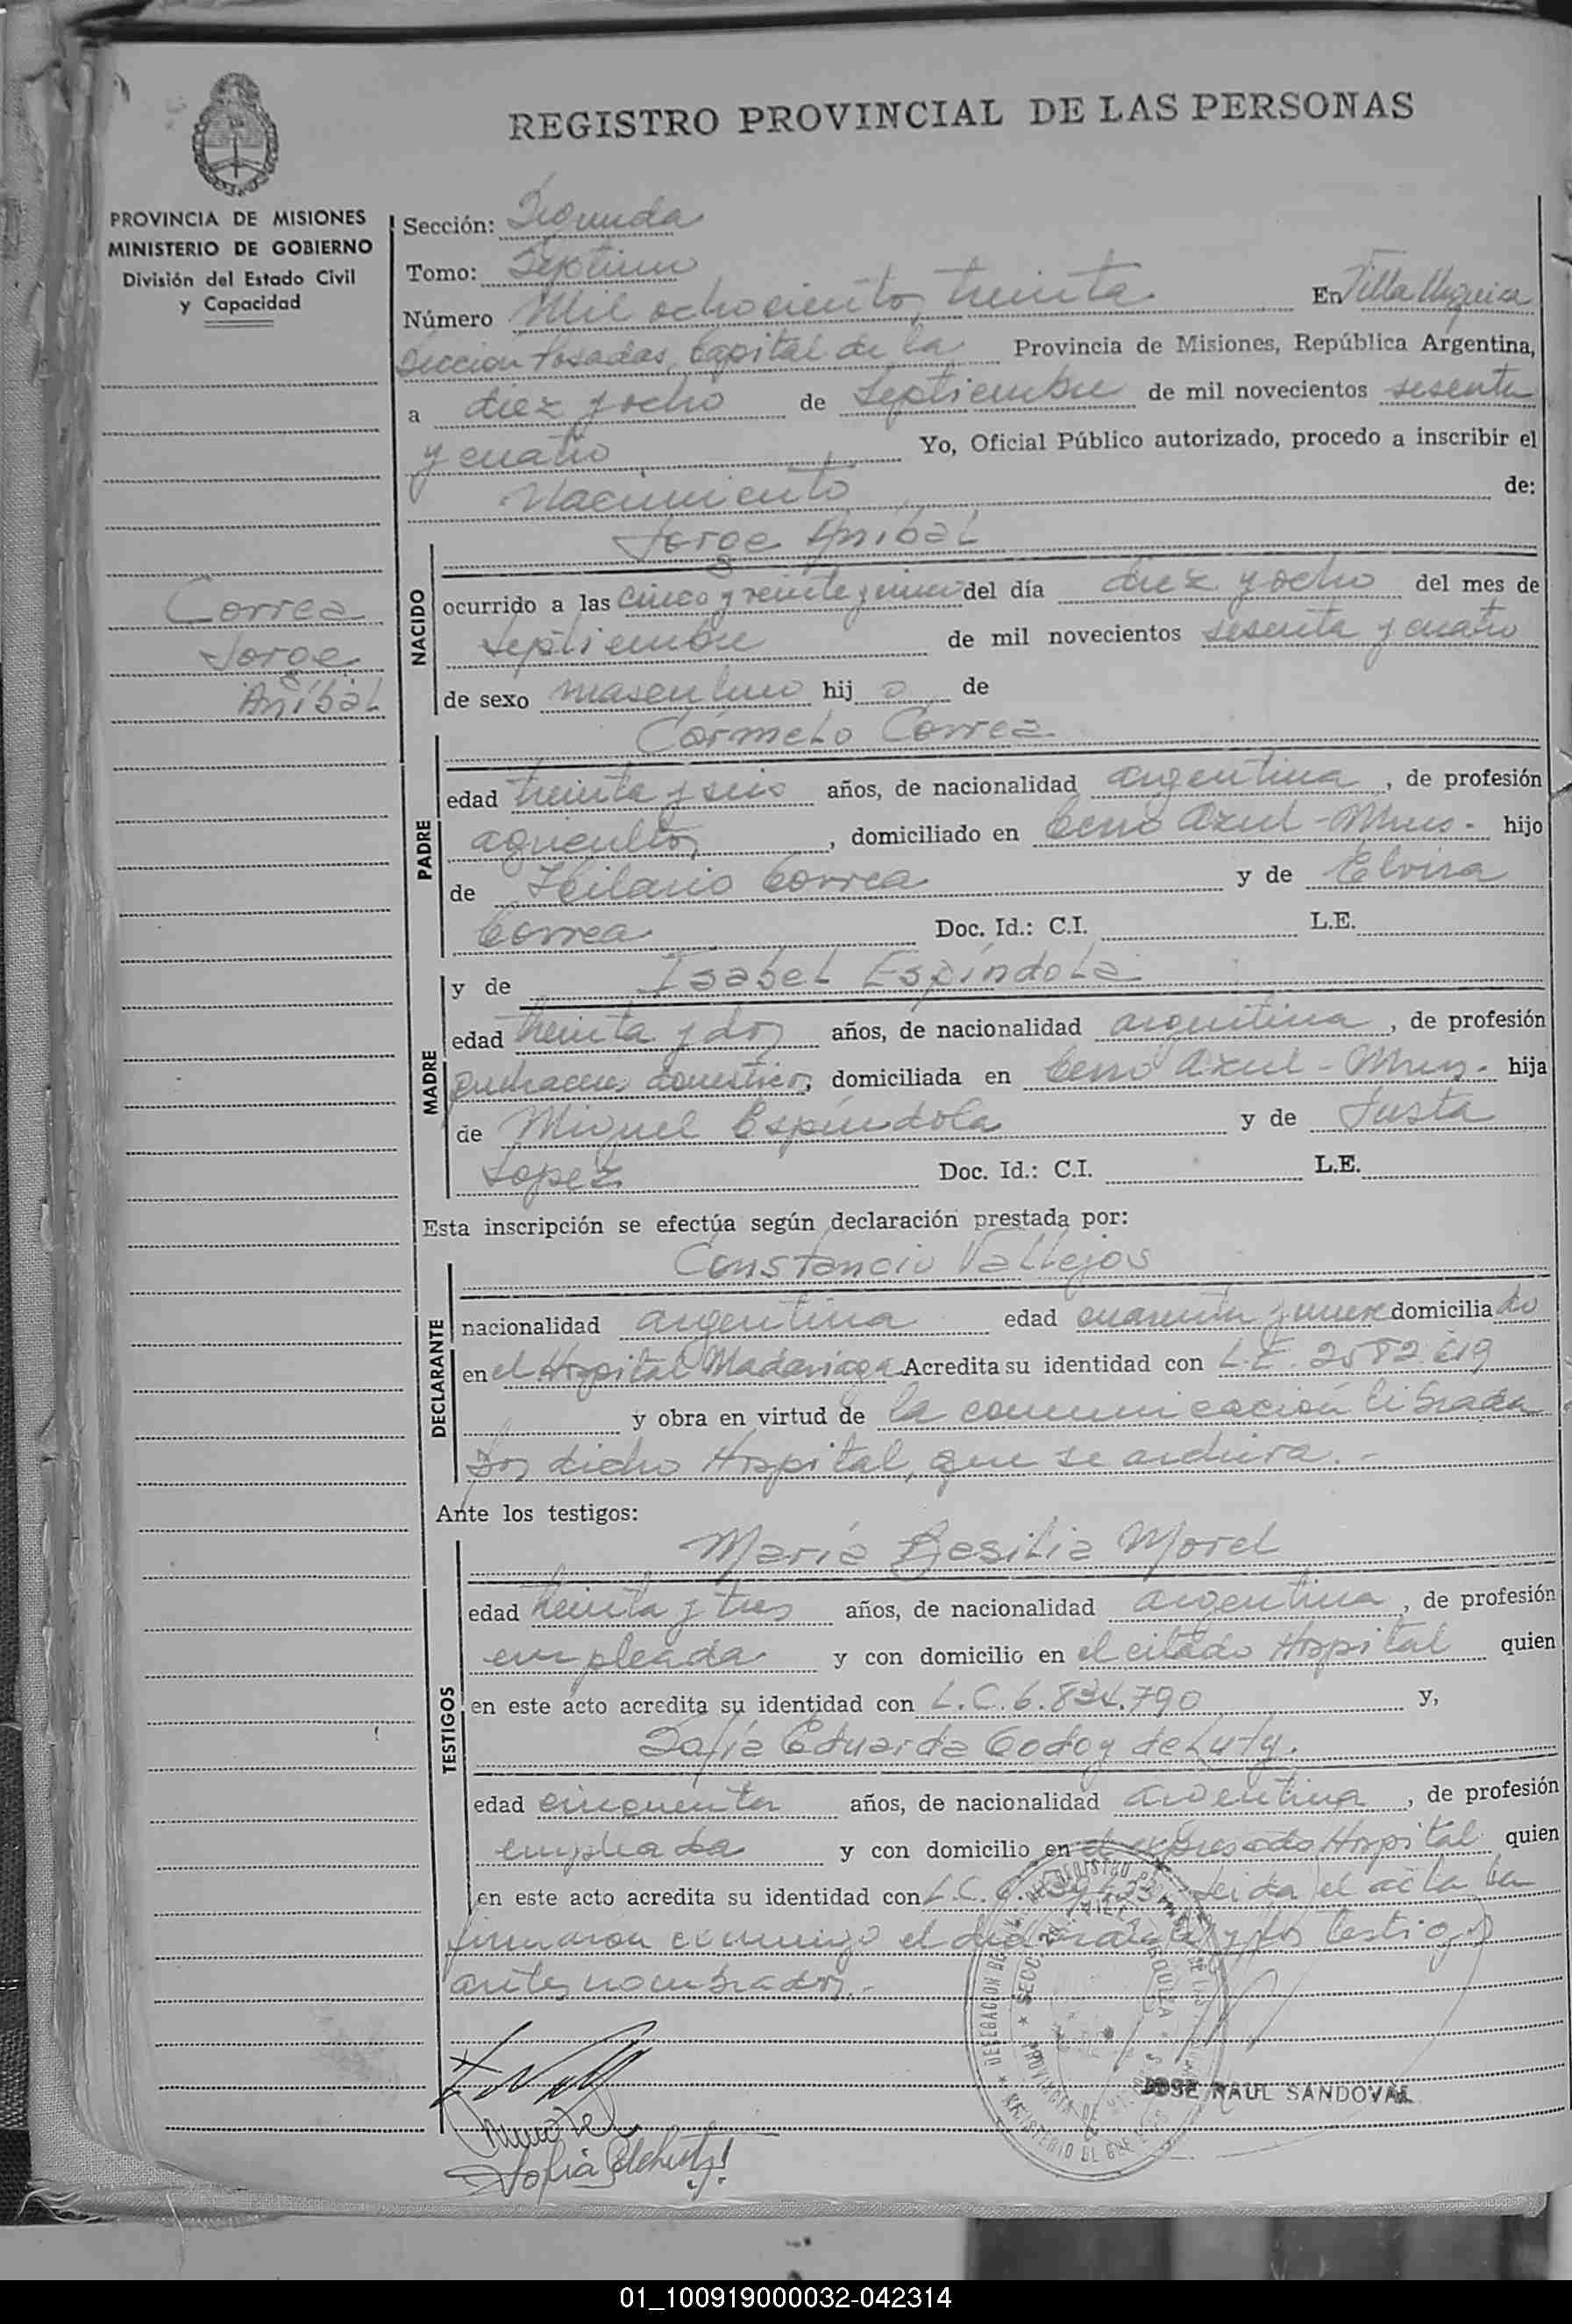 REGISTRO PROVINCIAL DE LAS PERSONAS
PROVINCIA DE MISIONES
MINISTERIO DE GOBIERNO
División del Estado Civil
y Capacidad
Correa
Jorge
Aníbal
Sección: Segunda
Tomo: Septimo
Número Mil ochocientos treinta En Villa Urquiza
Sección Posadas, Capital de la Provincia de Misiones, República Argentina,
a diez y ocho de Septiembre de mil novecientos sesenta
y cuatro Yo, Oficial Público autorizado, procedo a inscribir el
Nacimiento de:
Jorge Aníbal
NACIDO
ocurrido a las cinco y veinte y cinco del día diez y ocho del mes de
septiembre de mil novecientos sesenta y cuatro
de sexo masculino hij o de
Carmelo Correa
PADRE
edad treinta y seis años, de nacionalidad argentina, de profesión
agricultor, domiciliado en Cerro Azul - Mnes. hijo
de Hilario Correa y de Elvira
Correa Doc. Id.: C.I. L.E.
MADRE
y de Isabel Espíndola
edad treinta y dos años, de nacionalidad argentina, de profesión
quehaceres domésticos, domiciliada en Cerro Azul - Mnes. hija
de Miguel Espíndola y de Justa
Lopez Doc. Id.: C.I. L.E.
Esta inscripción se efectúa según declaración prestada por:
Constancio Vallejos
DECLARANTE
nacionalidad argentina edad cuarenta y nueve domiciliado
en el Hospital Madariaga Acredita su identidad con L.E. 2582.619
y obra en virtud de la comunicación librada
por dicho Hospital, que se archiva. -
Ante los testigos:
María Basilia Morel
TESTIGOS
edad treinta y tres años, de nacionalidad argentina, de profesión
empleada y con domicilio en el citado Hospital quien
en este acto acredita su identidad con L.C. 6.834.790 y,
Sofía Eduarda Godoy de Luty.
edad cincuenta años, de nacionalidad argentina, de profesión
empleada y con domicilio en el expresado Hospital quien
en este acto acredita su identidad con L.C. Leida el acta la
firmaron conmigo el declarante y los testigos
antes nombrados.-
JOSE RAUL SANDOVAL
01_100919000032-042314